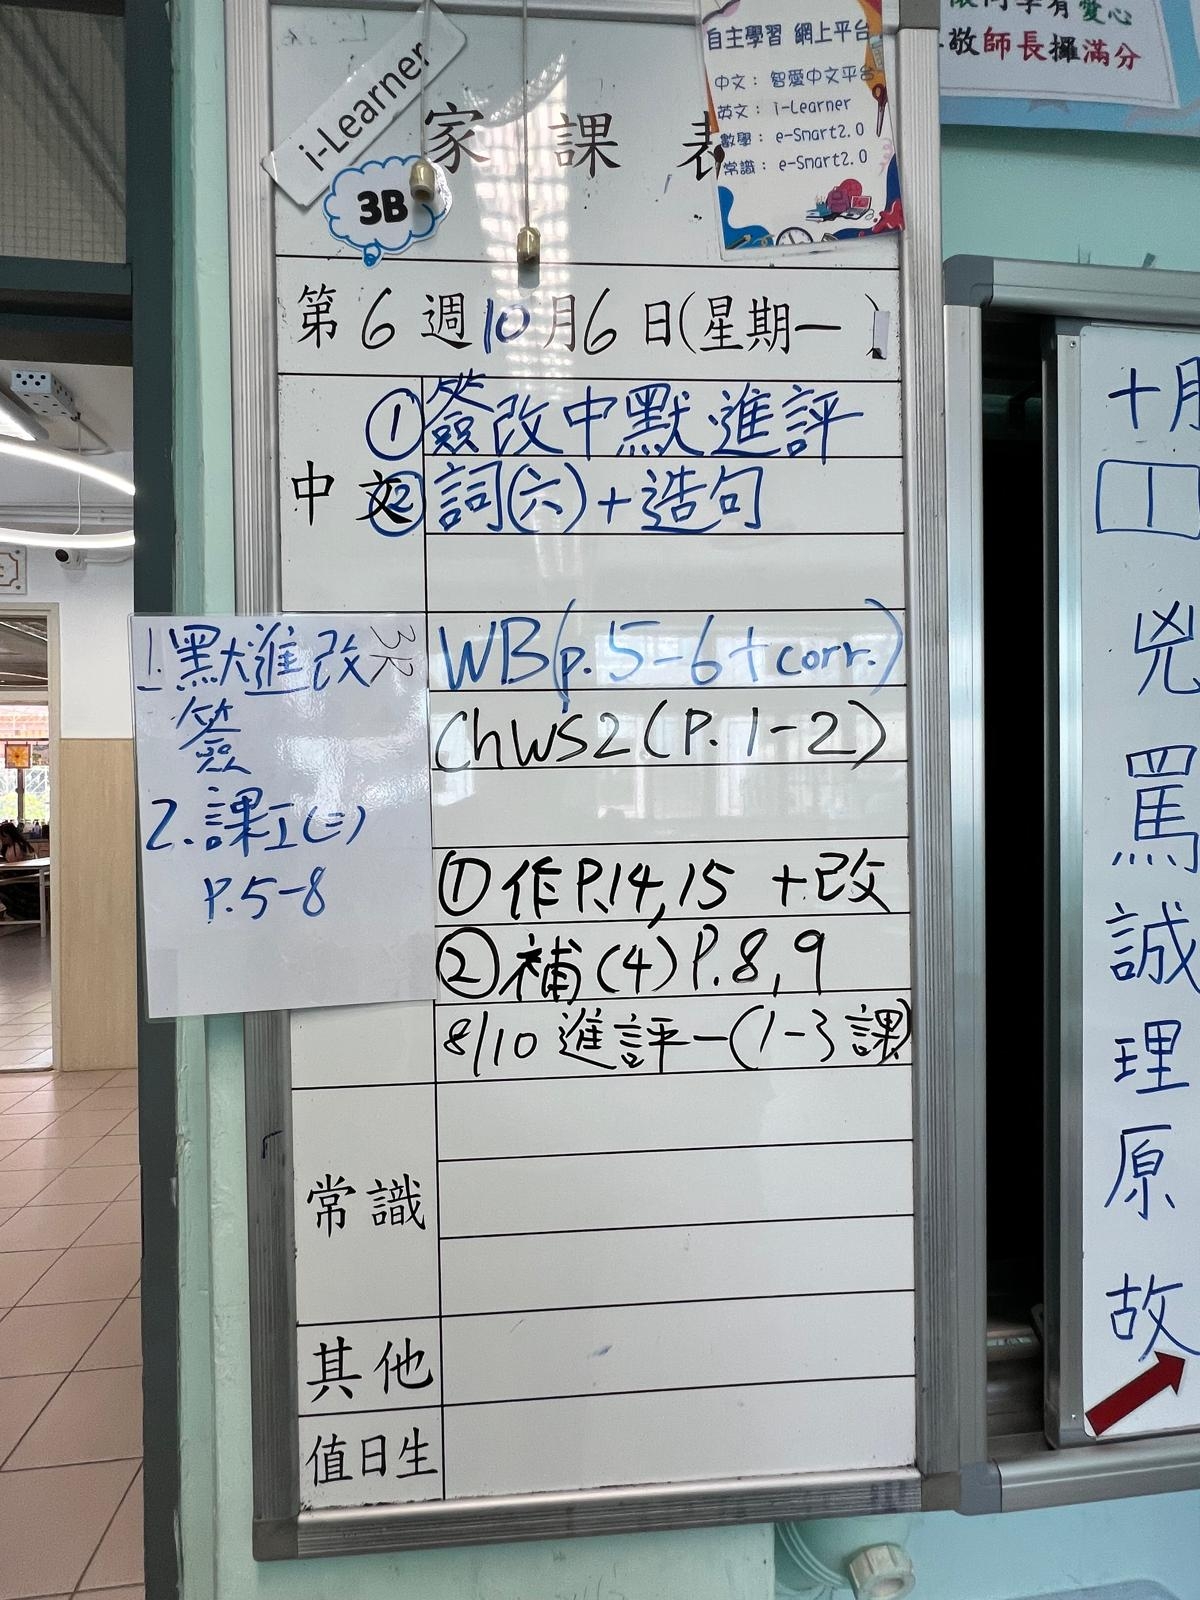 i-Learner
3B
家課表
自主學習 網上平台
中文： 智愛中文平台
英文： i-Learner
數學： e-Smart2.0
常識： e-Smart2.0
同學有愛心
敬師長攞滿分
第6週10月6日(星期一)
中文
①簽改中默進評
②詞(六)+造句
WB(p.5-6+corr.)
ChWS2(P.1-2)
①作P.14,15 +改
②補(4)P.8,9
8/10 進評一(1-3課)
1.默進改
簽
2.課工(二)
P.5-8
常識
其他
值日生
十月
1
兇
罵
誠
理
原
故